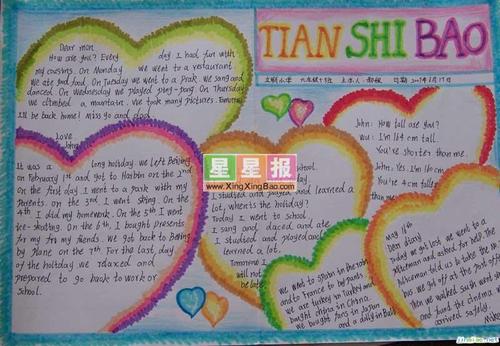 TIAN SHI BAO
Dear mon
How are you? Every day I had fun with
my cousins. On Monday we went to a restaurant.
We ate good food. On Tuesday we went to a Prak. We sang and
danced. On Wednesday we played ping-pong. On Thursday
we climbed a mantain. We took many pictures. Tomorrow
I'll be back home! miss go and dad
Love
John
It was a long holiday. we left Beijing
on February 1st and got to Harbin on the 2nd
on the first day I went to a park with my
parents. on the 3rd I went skiing. On the
4th I did my homework. On the 5th I went
ice-skating. On the 6th, I bought presents
for my friends. We got back to Beijing
by plane on the 7th. For the last day
of the holiday we relaxed and
prepared to go back to work or
school.
星星报
www.XingXingBao.com
school.
I studied and played and learned a
lot. when is the holiday?
Today I went to school.
I sang and daced and ate
I studied and played and
learned a lot.
Tomorrow I
will not
be late
John: How tall are you?
Wu: I'm 164 cm tall.
You're shorter than me.
John: Yes. I'm 160 cm
You're 4 cm taller
than me.
We went to Spain
and to France
we are turkey in Turkey and
bought china in China.
We bought fans in Japan
and a dolly in Bali
Dear diary
Today we got lost. We went to a
Policeman and asked for help. The
Policeman told us to take the
bus. We got off at the post office
Then we walked south went
and found the cinema. We
arrived safely.
Mike